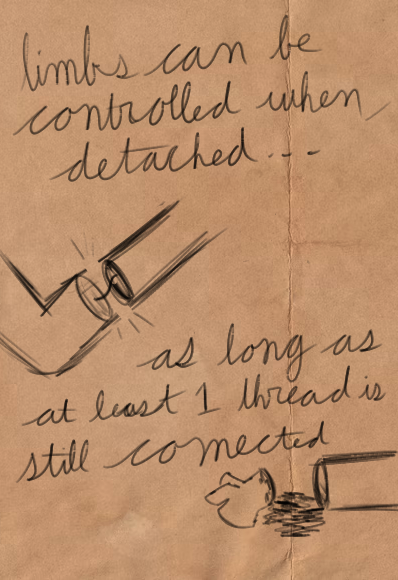 limbs can be
controlled when
detached...
as long as
at least 1 thread is
still connected